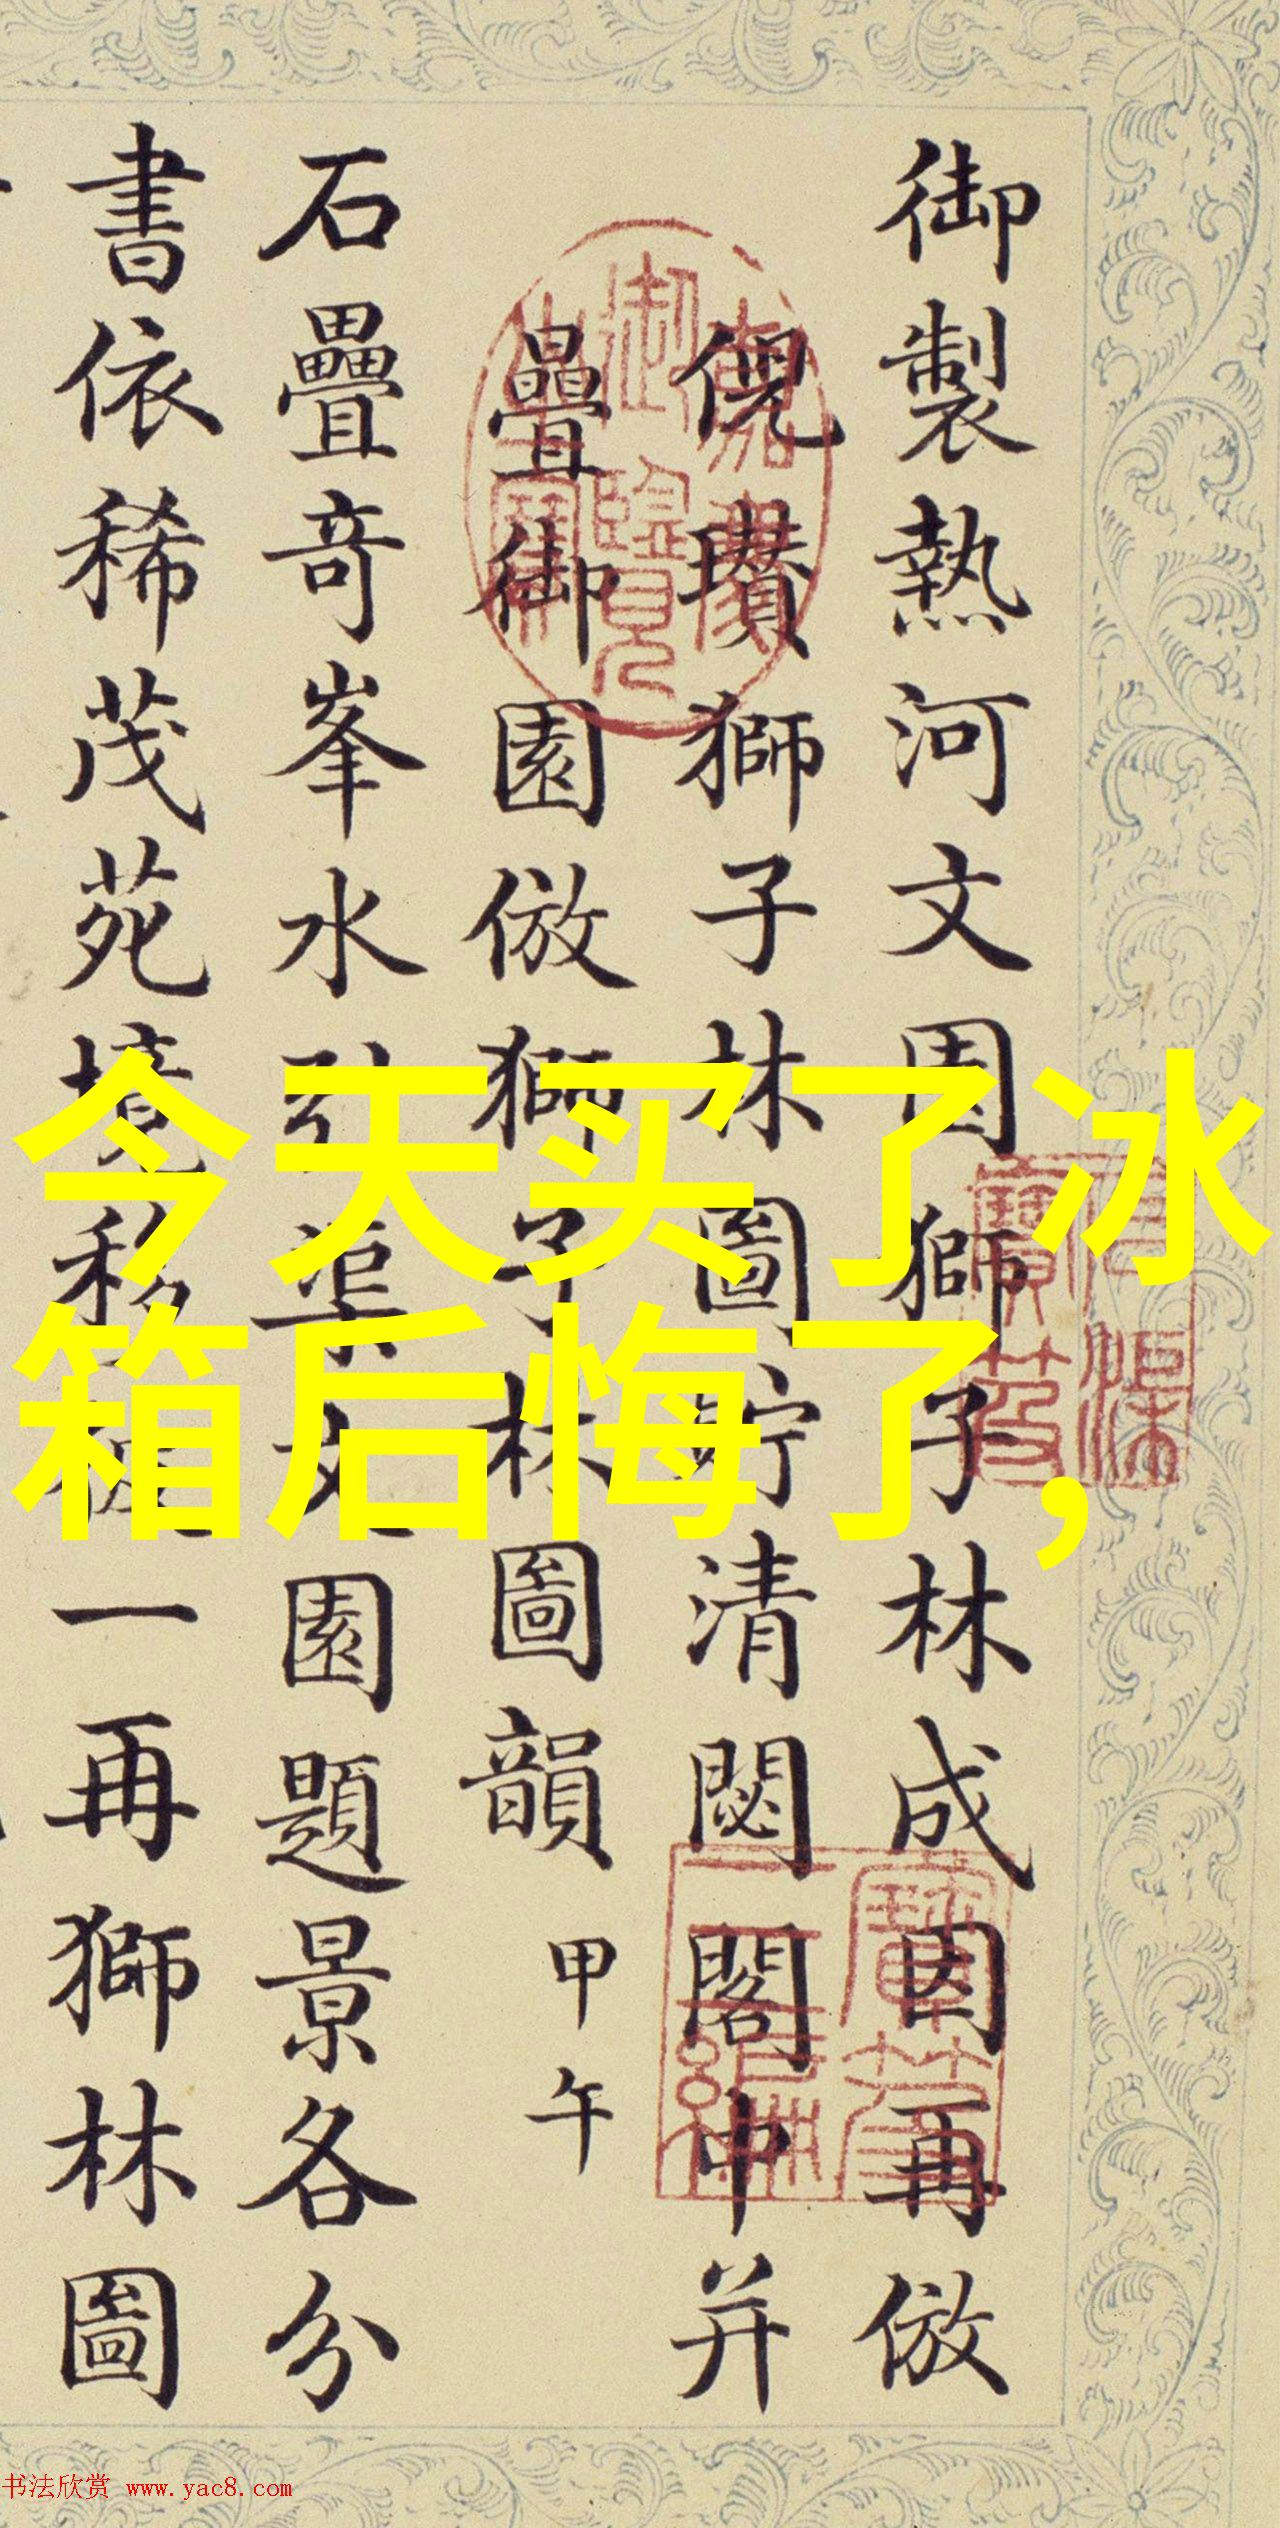 御製熱河文園獅子林成因再倣
倪瓚獅子林圖貯清閟閣中并
疊御園倣獅子林圖韻 甲午
石疊奇峯水 文園題景各分
書依稀茂苑境移 一再獅林圖
今天买了冰
箱后悔了,
书法欣赏 www.yac8.com